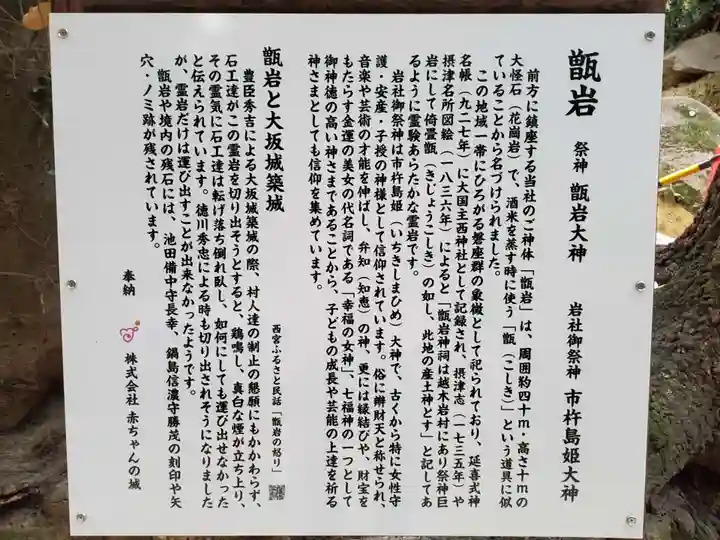 甑岩 祭神 甑岩大神 岩社御祭神 市杵島姫大神
前方に鎮座する当社のご神体「甑岩」は、周囲約四十m・高さ十mの
大怪石(花崗岩)で、酒米を蒸す時に使う「甑(こしき)」という道具に似
ていることから名づけられました。
この地域一帯にひろがる磐座群の象徴として祀られており、延喜式神
名帳(九二七年)に大国主西神社として記録され、摂津志(一七三五年)や
摂津名所図絵(一八三六年)によると「甑岩神祠は越木岩村にあり祭神巨
岩にして倚疊甑(きじょうこしき)の如し、此地の産土神とす」と記してあ
るように霊験あらたかな霊岩です。
岩社御祭神は市杵島姫(いちきしまひめ)大神で、古くから特に女性守
護・安産・子授の神様として信仰されています。俗に辨財天と称せられ、
音楽や芸術の才能を伸ばし、弁知(知恵)の神、更には縁結びや、財宝を
もたらす金運の美女の代名詞である「幸福の女神」、七福神の一つとして
御神徳の高い神さまであることから、子どもの成長や芸能の上達を祈る
神さまとしても信仰を集めています。
甑岩と大坂城築城
西宮ふるさと民話「甑岩の怒り」
豊臣秀吉による大坂城築城の際、村人達の制止の懇願にもかかわらず、
石工達がこの霊岩を切り出そうとすると、鶏鳴し、真白な煙が立ち上り、
その霊気に石工達は転げ落ち倒れ臥し、如何にしても運び出せなかった
と伝えられています。徳川秀忠による時も切り出されそうになりました
が、霊岩だけは運び出すことが出来なかったようです。
甑岩や境内の残石には、池田備中守長幸、鍋島信濃守勝茂の刻印や矢
穴・ノミ跡が残されています。
奉納 株式会社 赤ちゃんの城